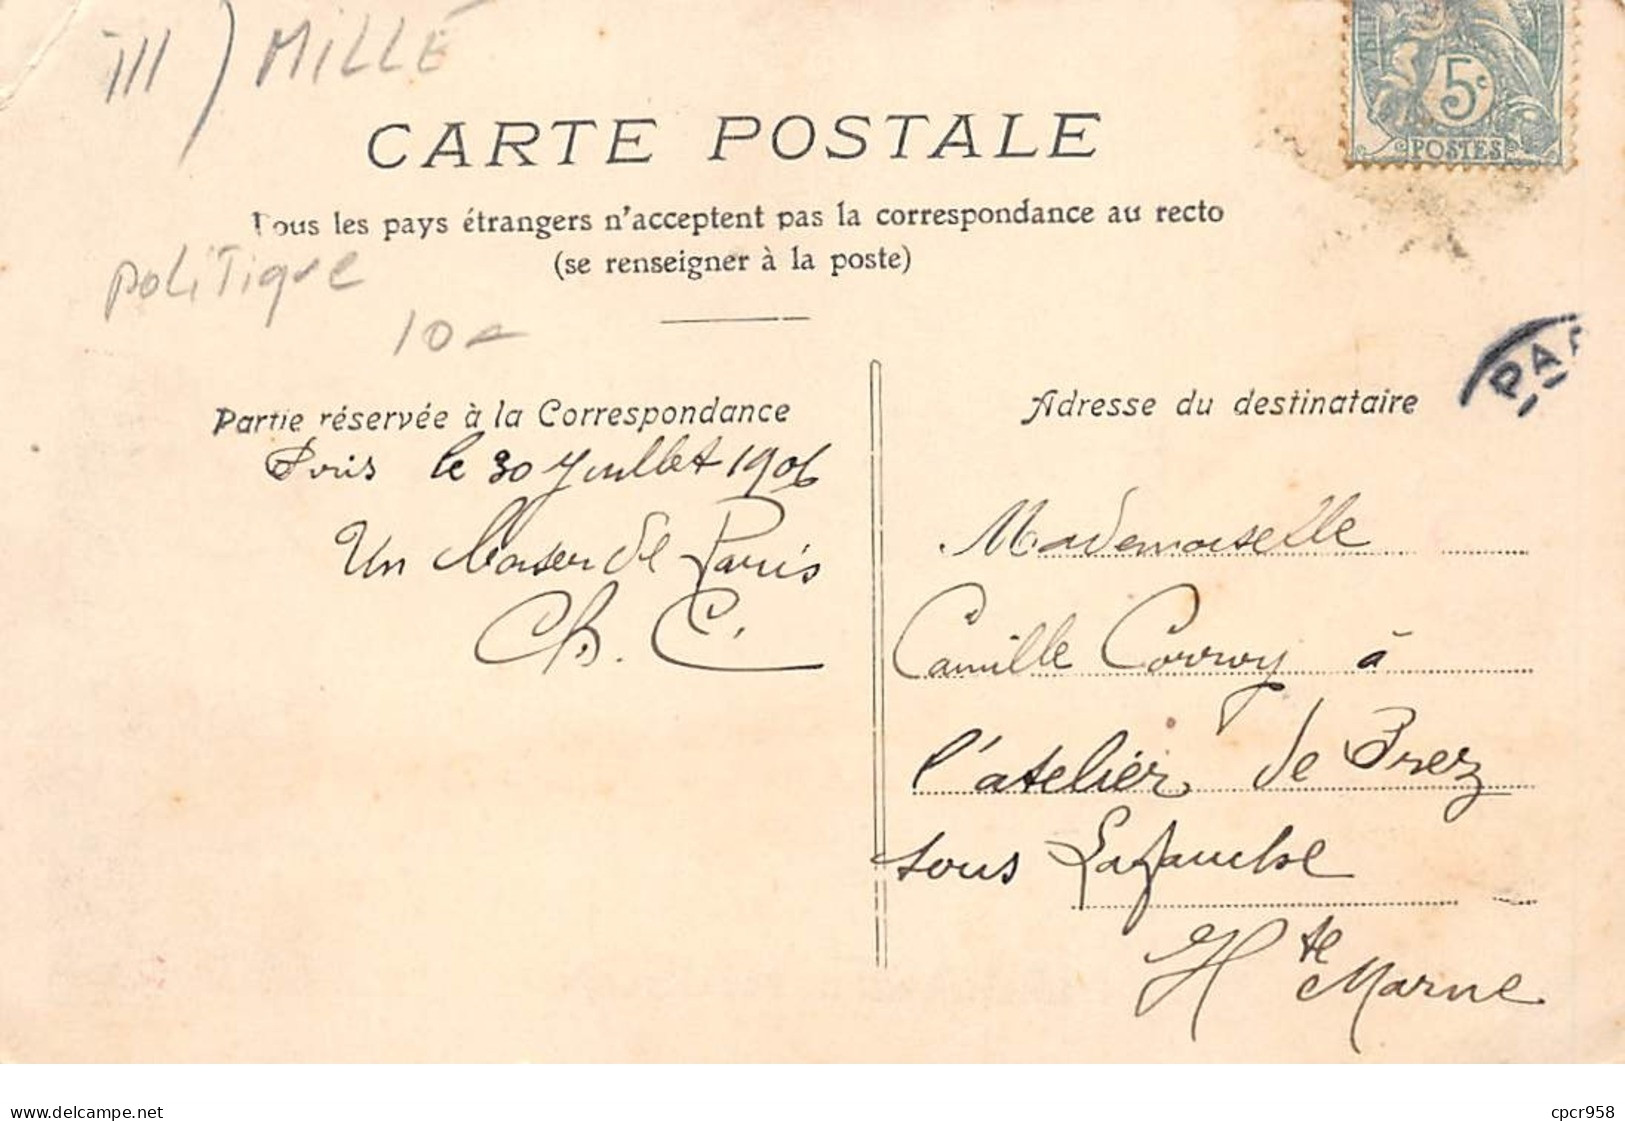 III) MILLE
5c
POSTES
CARTE POSTALE
Tous les pays étrangers n'acceptent pas la correspondance au recto
(se renseigner à la poste)
politique
10
PAR
Partie réservée à la Correspondance
Adresse du destinataire
Paris le 30 Juillet 1906
Un baiser de Paris
Ch. C.
Mademoiselle
Camille Corroy à
l'atelier de Prez
sous Lafauche
Hte Marne
www.delcampe.net
cpcr958